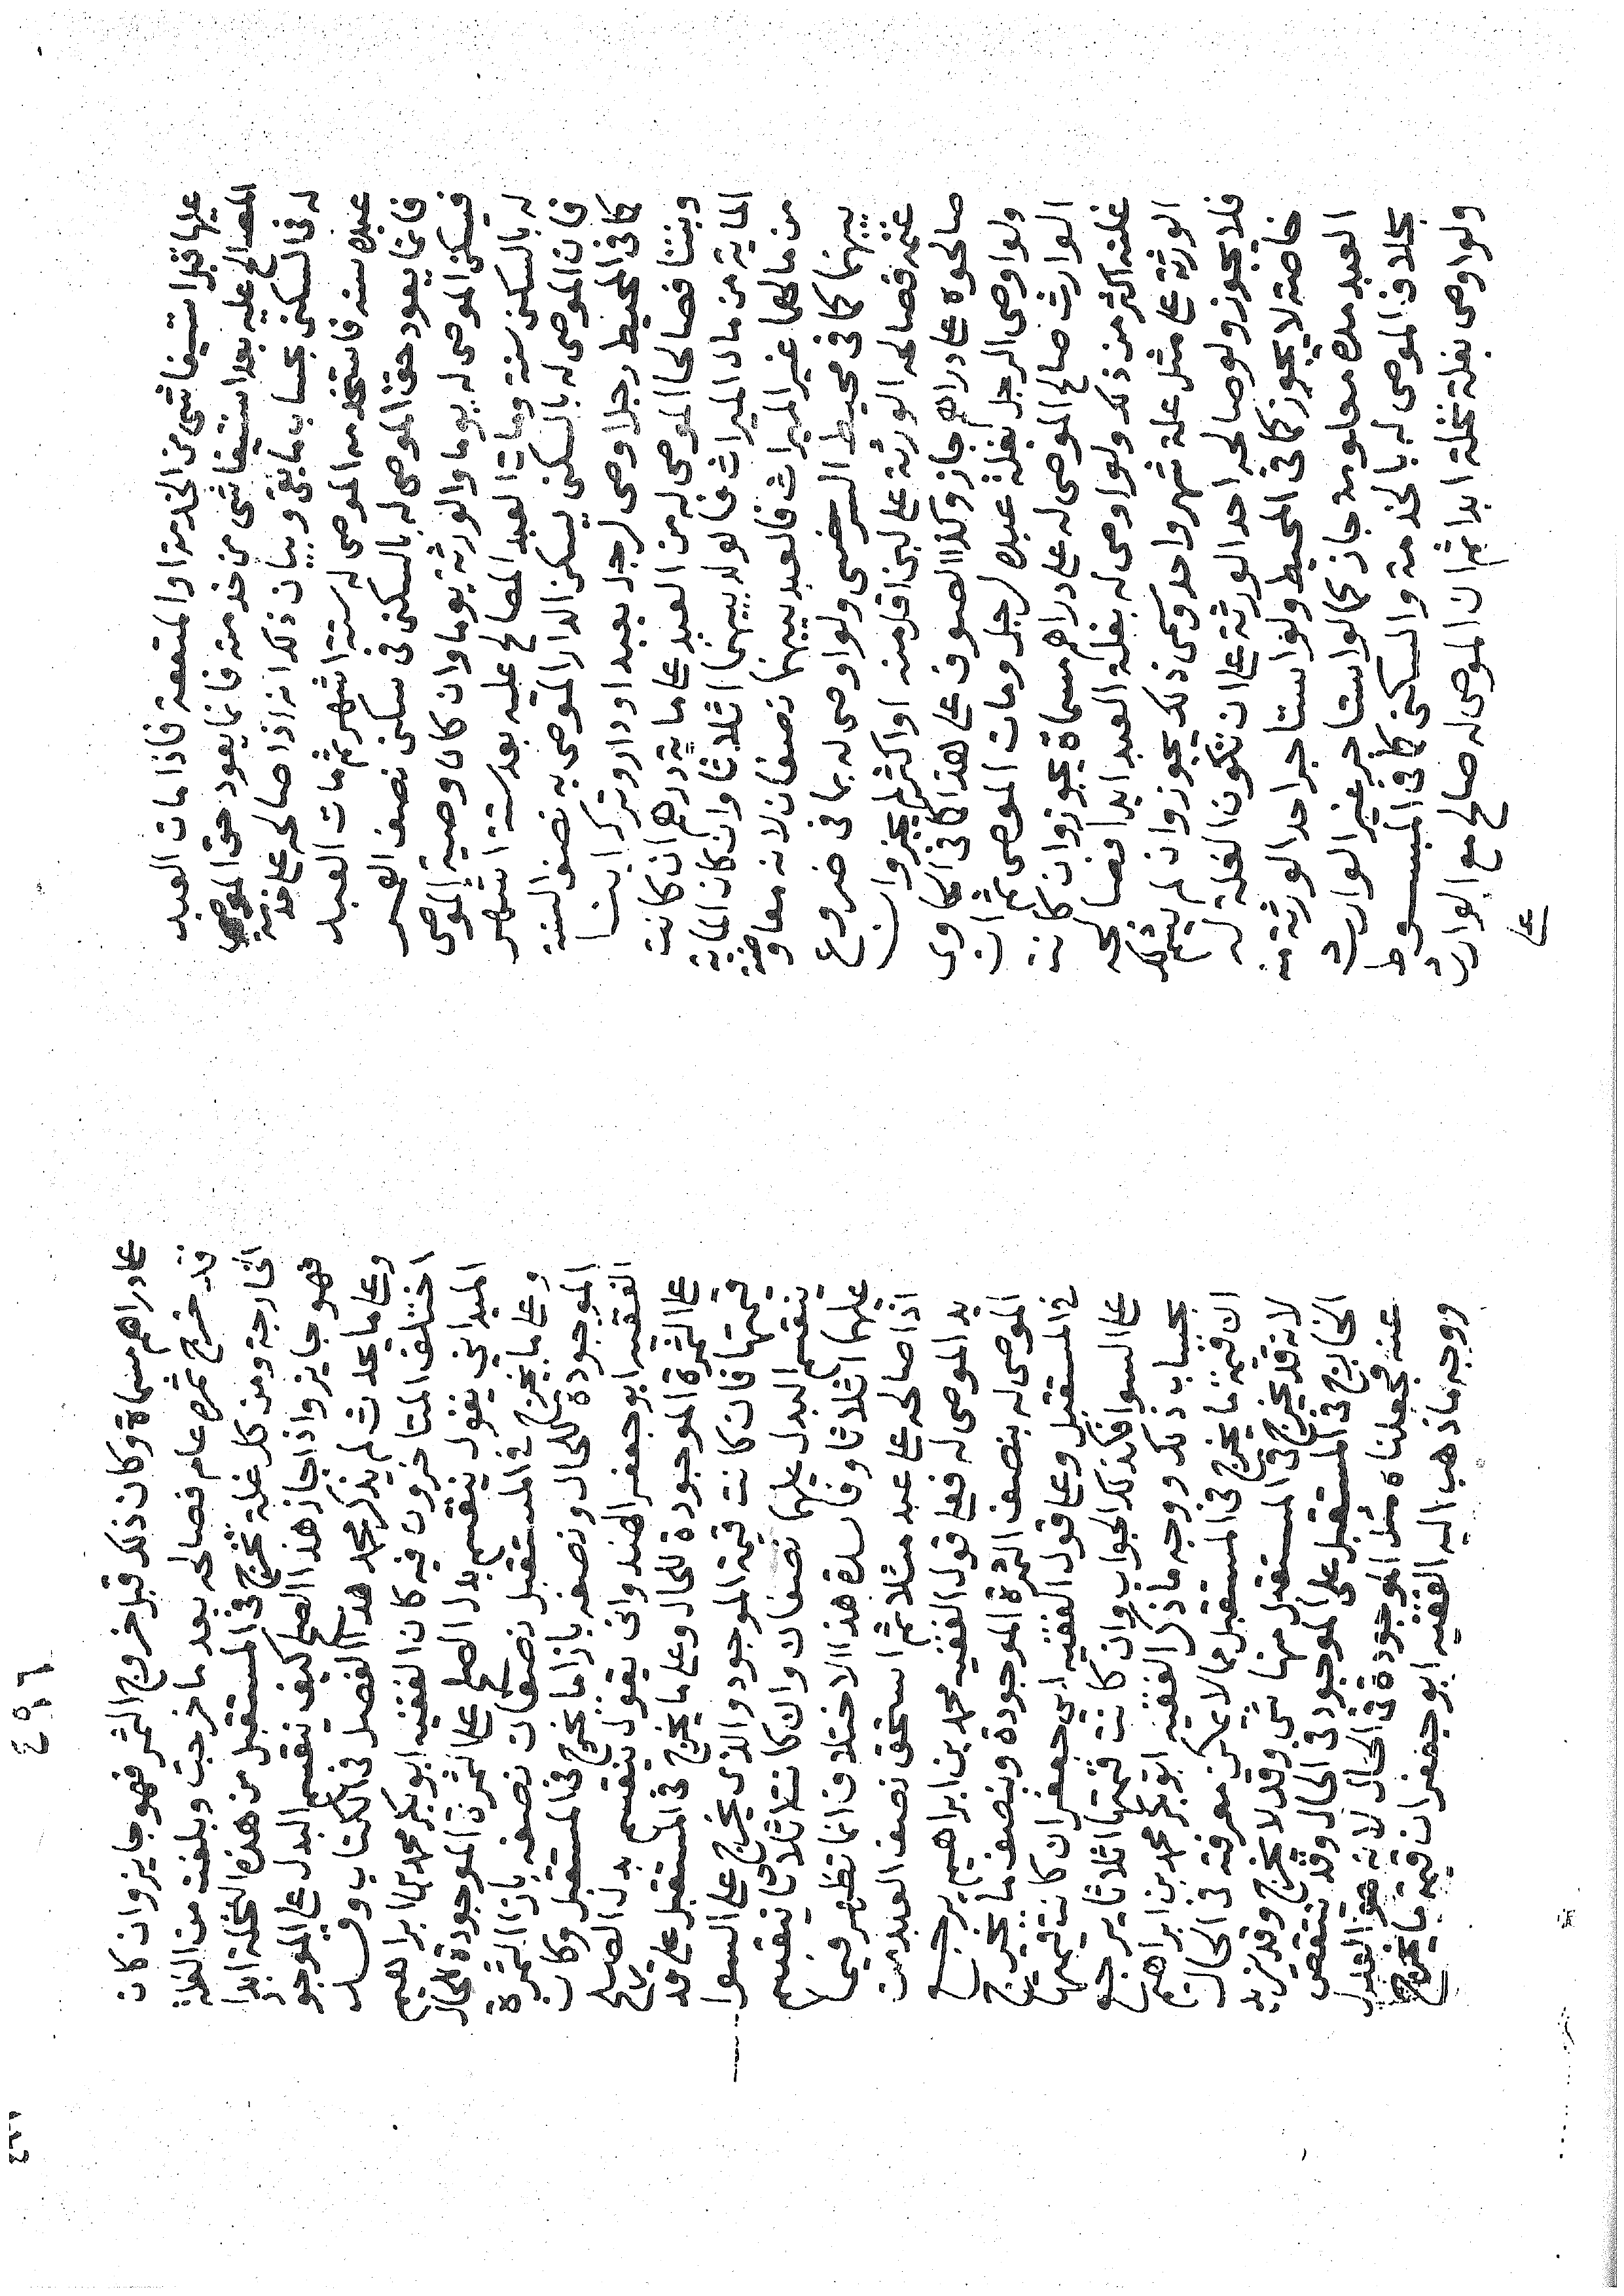 عليها قبل استيفا شي من الخدمة او المنفعة فاذا مات العبد
المصالح عليه بعد استيفا شي من خدمته فانما يعود حق الموصى
له في السكنى بحساب ما بقي وبيان ذلك انه اذا صالحه على خدمة
عبده سنه فاستخدمه الموصى له ستة اشهر ثم مات العبد
فانما يعود حق الموصى له بالسكنى في سكنى نصف العمر
فيسكن الموصى له يوما والورثة يوما وان كان وصية الموصى
له بالسكنى سنة ومات العبد المصالح عليه بعد ستة اشهر
فان الموصى له بالسكنى يسكن الدار الموصى به نصف السنة
كذا في المحيط رجل اوصى لرجل بعبد او دار وترك ابنا
وبنتا فصالحا الموصى له من العبد على ماية درهم ان كانت
الماية من مال الميراث فالولد بينهما اثلاثا وان كان الماية
من مالهما غير الميراث فالعبد بينهما نصفان لانه معاوضة
بينهما كذا في محيط السرخسي ولو اوصى له بما في ضروع
غنمه فصالحه الورثة على لبن اقل منه او اكثر لم يجز وان
صالحوه على دراهم جاز وكذا الصوف على هذا كذا في الحاوى
ولو اوصى الرجل بغلة عبده لرجل ومات الموصى ثم ان
الوارث صالح الموصى له على دراهم مسماة يجوز وان كانت
غلته اكثر من ذلك ولو اوصى له بغلة العبد ابدا فصالحه
الورثة على مثل غلة شهر واحد وسمى ذلك يجوز وان لم يسم ذلك
فلا يجوز ولو صالحه احد الورثة على ان تكون الغلة له
خاصة لا يجوز كذا في المحيط ولو استاجر احد الورثة منه
العبد مدة معلومة جاز كما لو استاجر غير الوارث
بخلاف الموصى له بالخدمة والسكنى كذا في المبسوط
ولو اوصى بغلة نخلة ابدا ثم ان الموصى له صالح مع الوارث
على
٤٩٦
على دراهم مسماة وكان ذلك قبل خروج الثمر فهو جايز وان كان
قد خرج ثمره عام فصالحه بعد ما خرجت وبلغت من الغلة
الخارجة ومن كل غلة تخرج في المستقبل من هذه النخلة ابدا
فهو جايز واذا جاز هذا الصلح كيف ينقسم البدل على الموجود
وعلى ما يحدث لم يذكر محمد هذا الفصل في الكتاب وقد
اختلف المتاخرون فيه كان الفقيه ابو بكر محمد بن ابراهيم
الميداني يقول ينقسم بدل الصلح على الثمرة الموجودة للحال
وعلى ما يخرج في المستقبل نصفان نصفه بازا الثمرة
الموجودة للحال ونصفه بازا ما يخرج في المستقبل وكان
الفقيه ابو جعفر الهندوانى يقول ينقسم بدل الصلح
على الثمرة الموجودة للحال وعلى ما يخرج في المستقبل على قدر
قيمتها فان كانت قيمة الموجود والذى يخرج على السوا
ينقسم البدل عليهما نصفان وان كانت اثلاثا ينقسم
عليهما اثلاثا وفايدة هذا الاختلاف انما تظهر فيما
اذا صالحه على عبد مثلا ثم استحق نصف العبد من
يد الموصى له فعلى قول الفقيه محمد بن ابراهيم يرجع
الموصى له بنصف الثمرة الموجودة وبنصف ما يخرج
في المستقبل وعلى قول الفقيه ابى جعفر ان كانت قيمتها
على السوا فكذلك الجواب وان كانت قيمتها اثلاثا يرجع
بحساب ذلك ووجه ما ذكر الفقيه ابو بكر محمد بن ابراهيم
ان قيمة ما يخرج في المستقبل مما لا يمكن معرفته في الحال
لانه قد يخرج في المستقبل منها شي وقد لا يخرج وقد يزيد
الخارج في المستقبل على الموجود في الحال وقد ينتقص
عنه فجعلناه مثل الموجودة في الحال لانه هو العدل
ووجه ما ذهب اليه الفقيه ابو جعفر ان قيمة ما يخرج